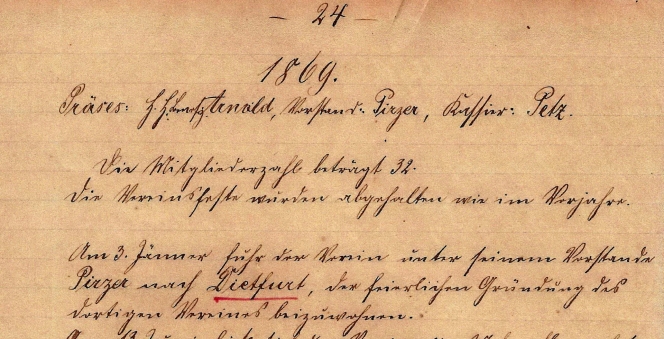 — 24 —
1869.
Präses: H. H. Arnold, Vorstand: Pirzer, Kassier: Petz.
Die Mitgliederzahl beträgt 32.
Die Vereinsfeste wurden abgehalten wie im Vorjahre.
Am 3. Jänner fuhr der Verein unter seinem Vorstande
Pirzer nach Dietfurt, der feierlichen Gründung des
dortigen Vereines beizuwohnen.